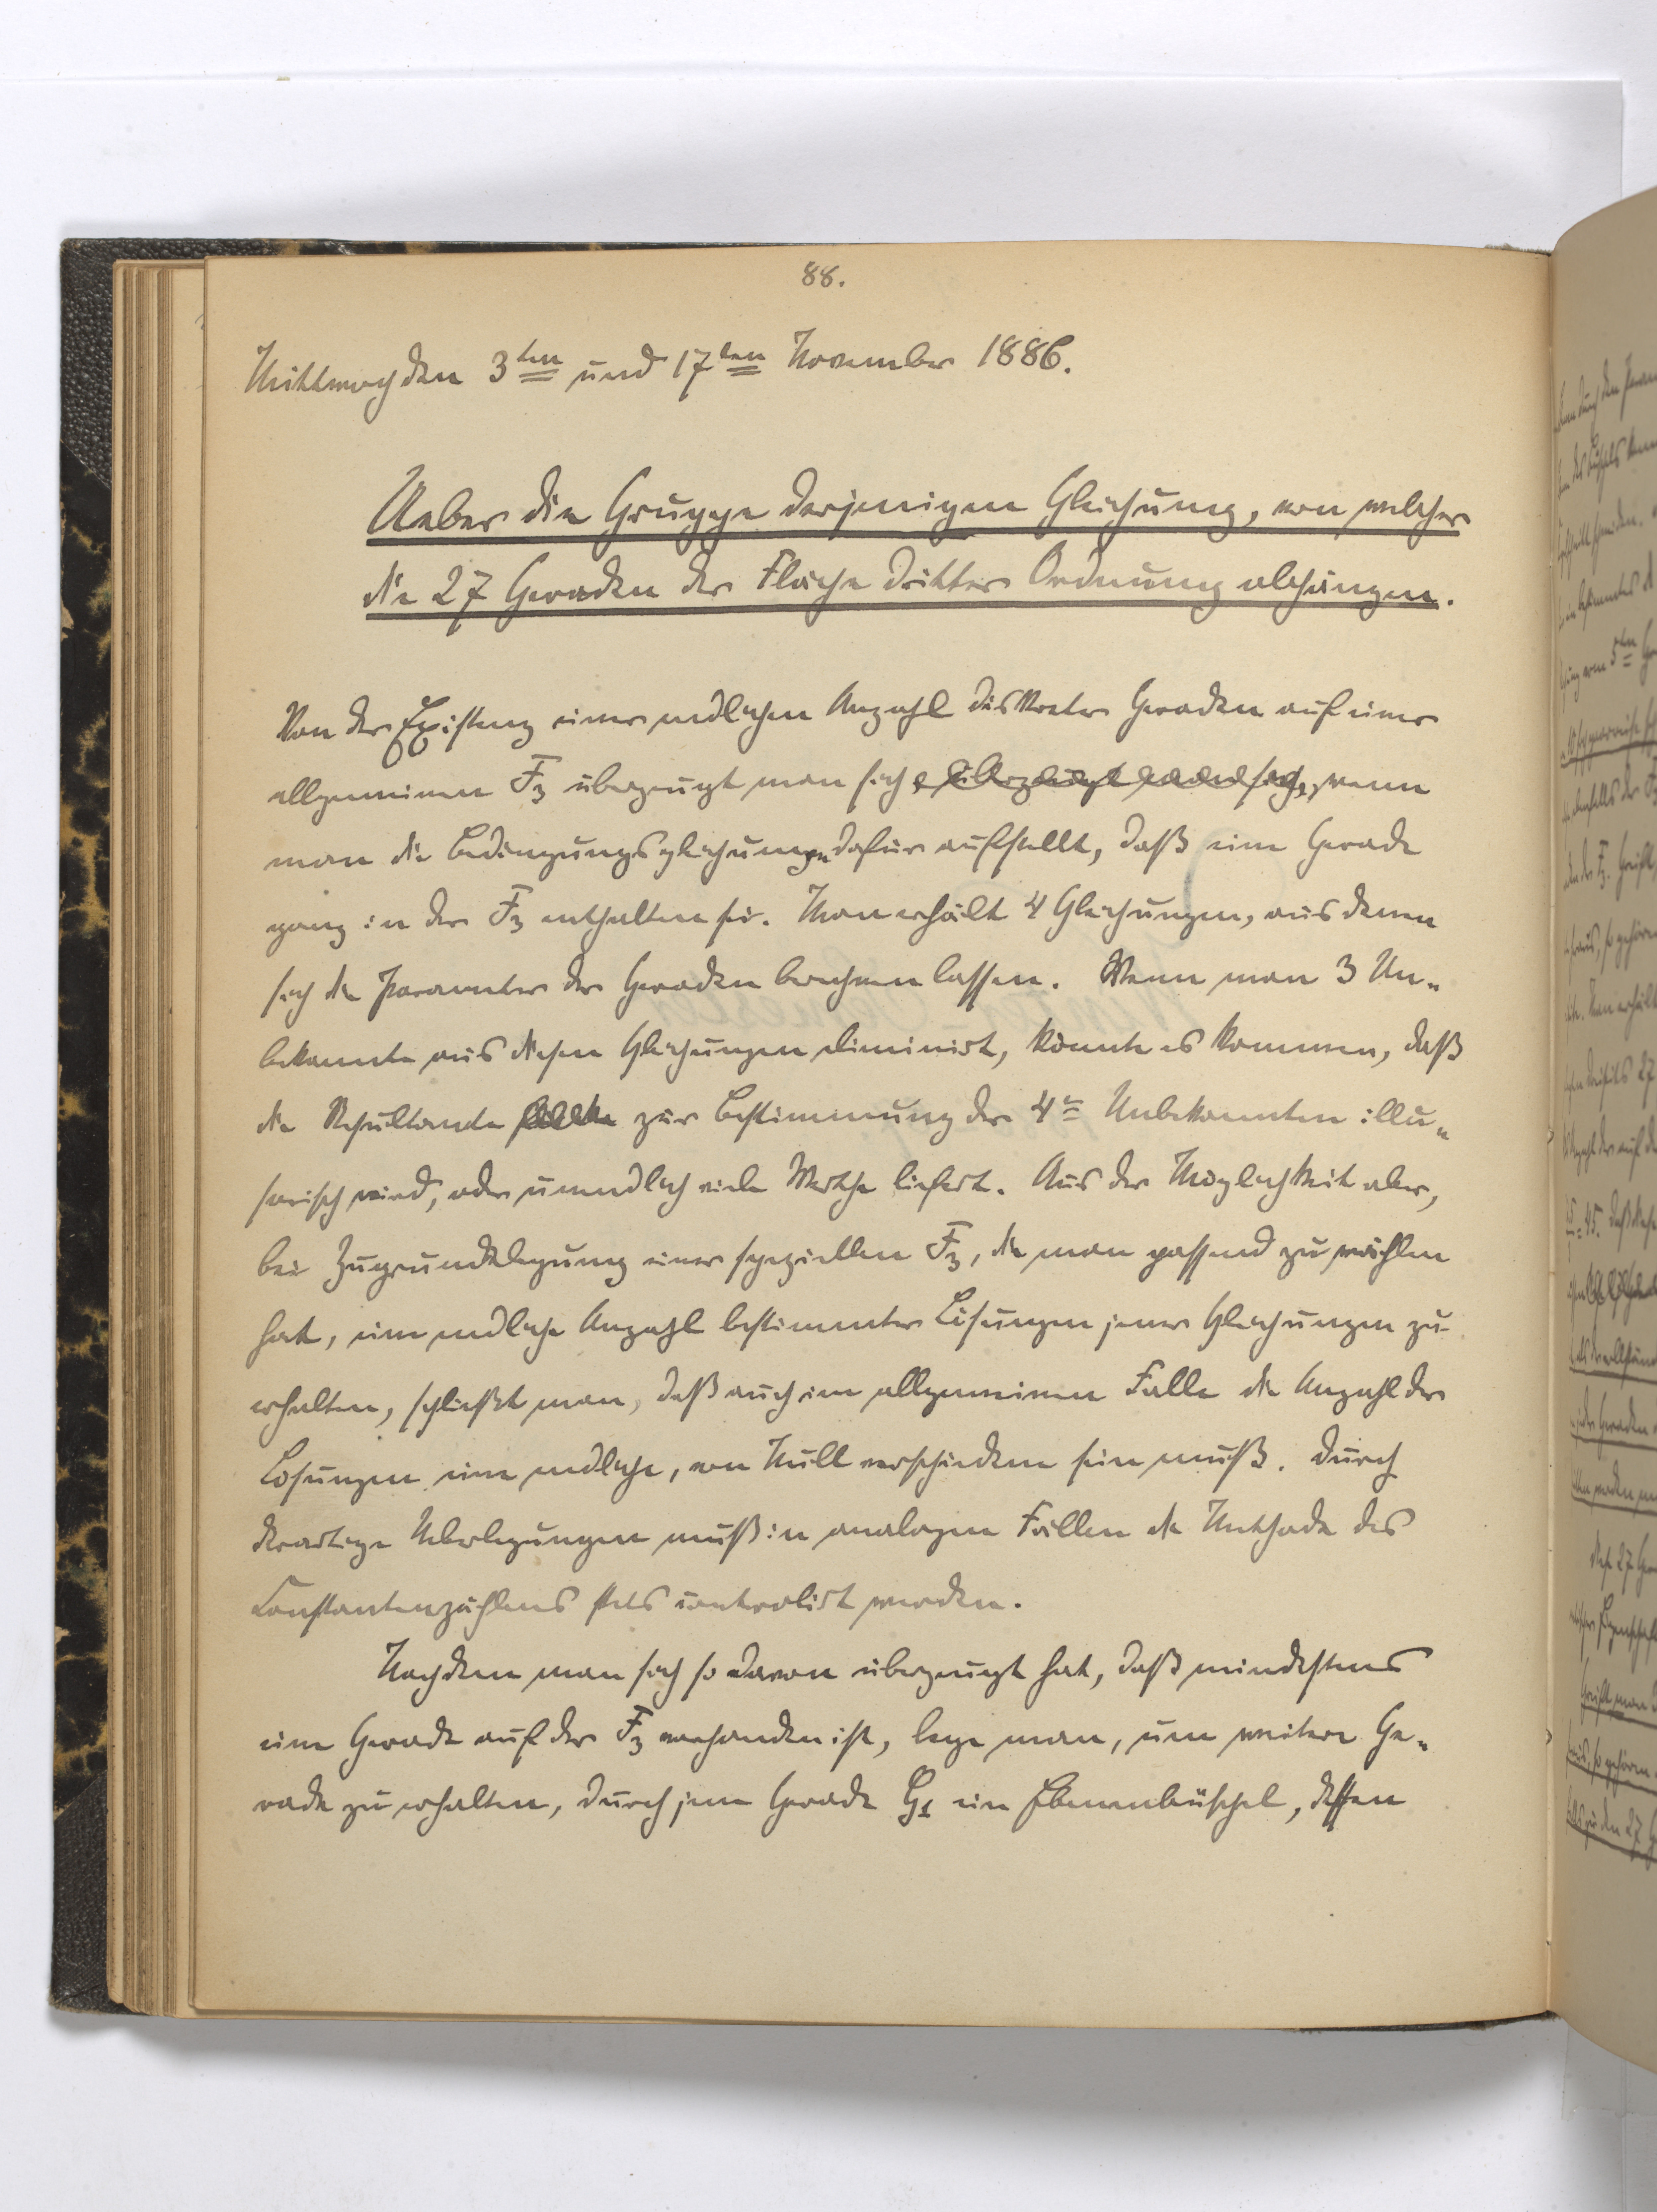 88.
Mittwoch den 3ten und 17ten November 1886.
Ueber die Gruppe derjenigen Gleichung, von welcher
die 27 Geraden der Fläche dritter Ordnung abhängen.
Von der Existenz einer endlichen Anzahl diskreter Geraden auf einer
allgemeinen F3 überzeugt man sich, überzeugt man sich, wenn
man die Bedingungsgleichungen dafür aufstellt, daß eine Gerade
ganz in der F3 enthalten sei. Man erhält 4 Gleichungen, aus denen
sich die Parameter der Geraden berechnen lassen. Wenn man 3 Un-
bekannte aus diesen Gleichungen eliminirt, könnte es kommen, daß
die Resultante zur Bestimmung der 4ten Unbekannten illu-
sorisch wird, oder unendlich viele Werthe liefert. Aus der Möglichkeit aber,
bei Zugrundelegung einer speziellen F3, die man passend zu wählen
hat, eine endliche Anzahl bestimmter Lösungen jener Gleichungen zu
erhalten, schließt man, daß auch im allgemeinen Falle die Anzahl der
Lösungen eine endliche, von Null verschiedene sein muß. Durch
derartige Ueberlegungen muß in analogen Fällen die Methode des
Constantenzählens stets controlirt werden.
Nachdem man sich so davon überzeugt hat, daß mindestens
eine Gerade auf der F3 vorhanden ist, lege man, um weitere Ge-
rade zu erhalten, durch jene Gerade G1 ein Ebenenbüschel, dessen